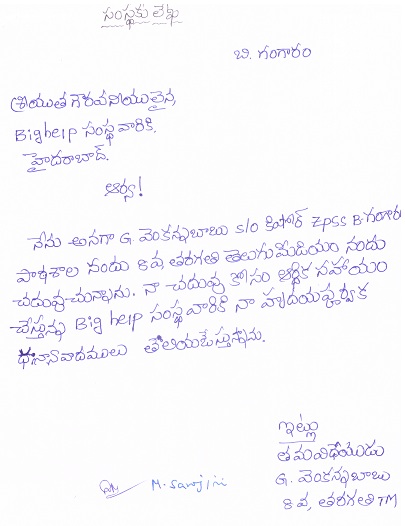 సంస్థకు లేఖ
బి. గంగారం
శ్రీయుత గౌరవనీయులైన,
Bighelp సంస్థ వారికి,
హైదరాబాద్.
ఆర్యా!
నేను అనగా G. వెంకన్నబాబు S/o కిషోర్ ZPSS B.గంగారం
పాఠశాల నందు 8వ తరగతి తెలుగుమీడియం నందు
చదువుచున్నాను. నా చదువు కోసం ఆర్థిక సహాయం
చేస్తున్న Big help సంస్థ వారికి నా హృదయపూర్వక
ధన్యవాదములు తెలియజేస్తున్నాను.
ఇట్లు
తమవిధేయుడు
G. వెంకన్నబాబు
8వ, తరగతి TM
M. Sarojini